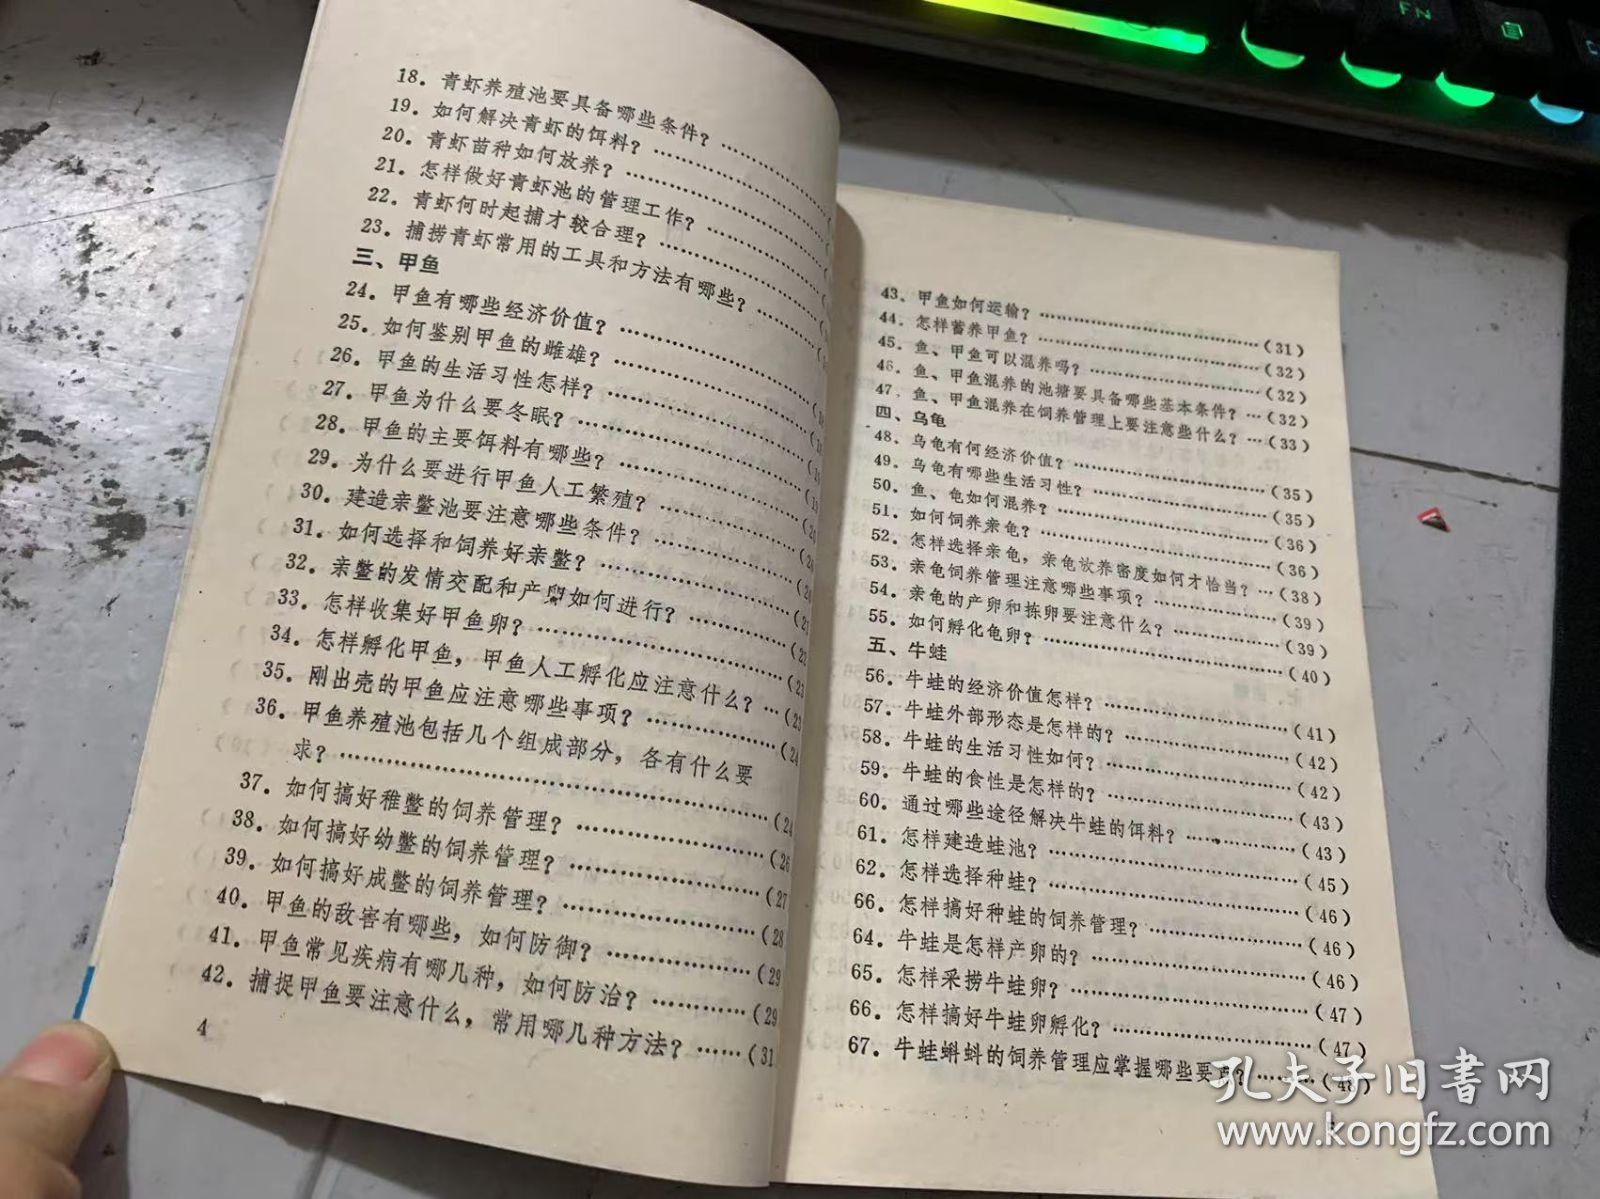 18. 青虾养殖池要具备哪些条件？…………
19. 如何解决青虾的饵料？…………
20. 青虾苗种如何放养？…………
21. 怎样做好青虾池的管理工作？…………
22. 青虾何时起捕才较合理？…………
23. 捕捞青虾常用的工具和方法有哪些？…………
三、甲鱼
24. 甲鱼有哪些经济价值？…………
25. 如何鉴别甲鱼的雌雄？…………
26. 甲鱼的生活习性怎样？…………
27. 甲鱼为什么要冬眠？…………
28. 甲鱼的主要饵料有哪些？…………
29. 为什么要进行甲鱼人工繁殖？…………
30. 建造亲鳖池要注意哪些条件？…………
31. 如何选择和饲养好亲鳖？…………
32. 亲鳖的发情交配和产卵如何进行？…………
33. 怎样收集好甲鱼卵？…………
34. 怎样孵化甲鱼，甲鱼人工孵化应注意什么？…(23
35. 刚出壳的甲鱼应注意哪些事项？…………(24
36. 甲鱼养殖池包括几个组成部分，各有什么要
求？…………(24
37. 如何搞好稚鳖的饲养管理？…………(26
38. 如何搞好幼鳖的饲养管理？…………(27
39. 如何搞好成鳖的饲养管理？…………(28
40. 甲鱼的敌害有哪些，如何防御？…………(29
41. 甲鱼常见疾病有哪几种，如何防治？…………(29
42. 捕捉甲鱼要注意什么，常用哪几种方法？……(31
4
43、甲鱼如何运输？…………(31)
44. 怎样蓄养甲鱼？…………(32)
45. 鱼、甲鱼可以混养吗？…………(32)
46. 鱼、甲鱼混养的池塘要具备哪些基本条件？…(32)
47. 鱼、甲鱼混养在饲养管理上要注意些什么？…(33)
四、乌龟
48. 乌龟有何经济价值？…………(35)
49. 乌龟有哪些生活习性？…………(35)
50. 鱼、龟如何混养？…………(36)
51. 如何饲养亲龟？…………(36)
52. 怎样选择亲龟，亲龟放养密度如何才恰当？…(38)
53. 亲龟饲养管理注意哪些事项？…………(39)
54. 亲龟的产卵和拣卵要注意什么？…………(39)
55. 如何孵化龟卵？…………(40)
五、牛蛙
56. 牛蛙的经济价值怎样？…………(41)
57. 牛蛙外部形态是怎样的？…………(42)
58. 牛蛙的生活习性如何？…………(42)
59. 牛蛙的食性是怎样的？…………(43)
60. 通过哪些途径解决牛蛙的饵料？…………(43)
61. 怎样建造蛙池？…………(45)
62. 怎样选择种蛙？…………(46)
66. 怎样搞好种蛙的饲养管理？…………(46)
64. 牛蛙是怎样产卵的？…………(46)
65. 怎样采捞牛蛙卵？…………(47)
66. 怎样搞好牛蛙卵孵化？…………(47)
67. 牛蛙蝌蚪的饲养管理应掌握哪些要点？………(48)
孔夫子旧书网
www.kongfz.com
FN